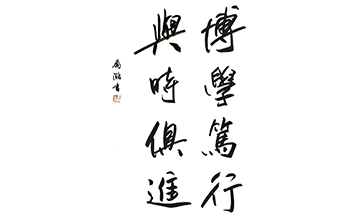 博學篤行
與時俱進